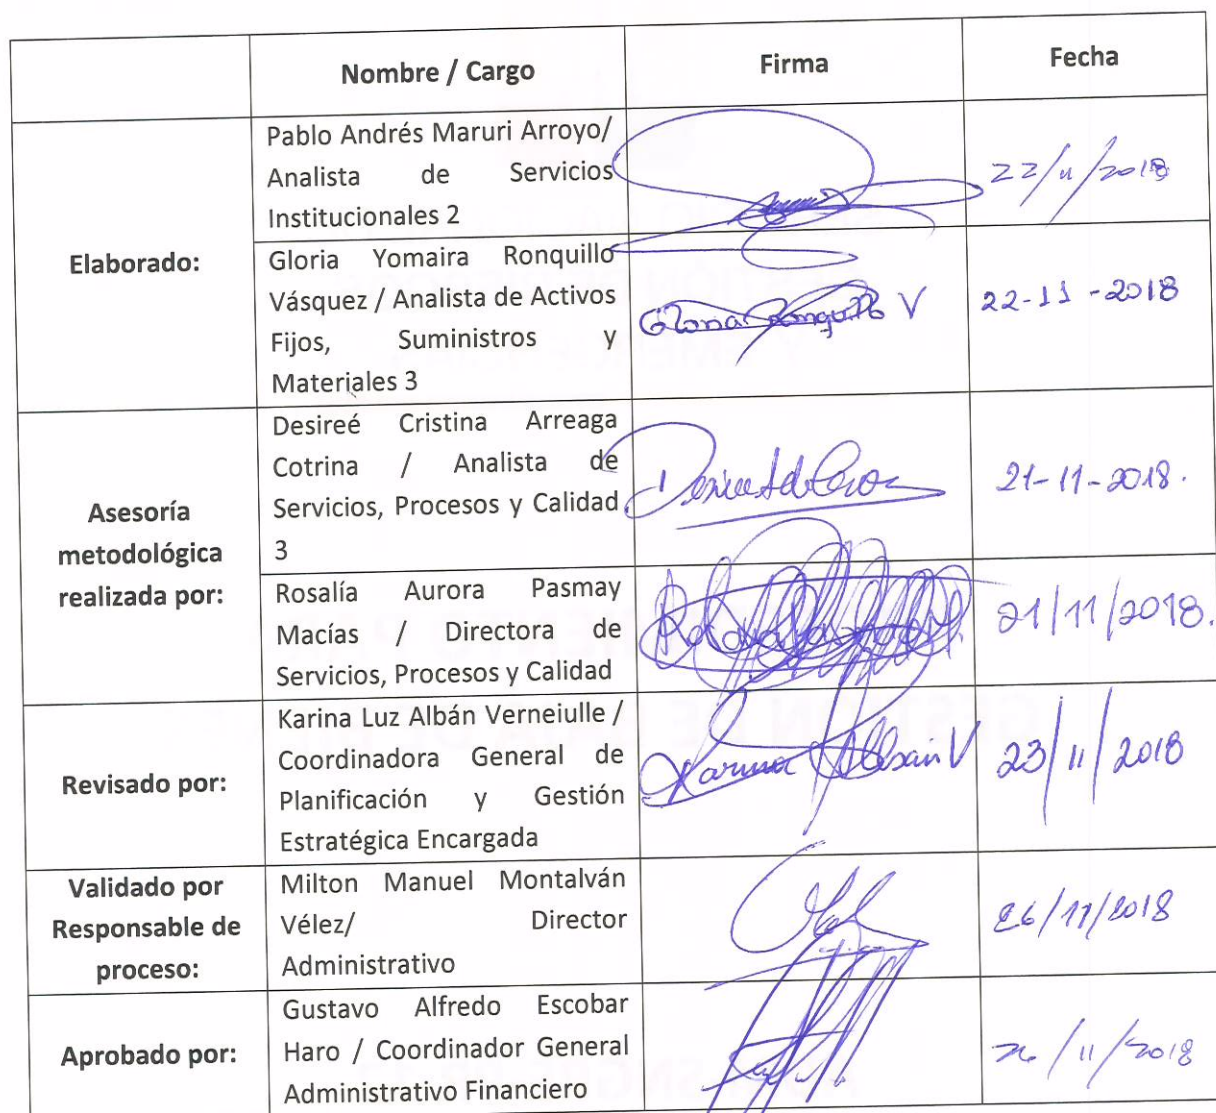 Nombre / Cargo
Firma
Fecha
Elaborado:
Pablo Andrés Maruri Arroyo/
Analista de Servicios
Institucionales 2
22/11/2018
Gloria Yomaira Ronquillo
Vásquez / Analista de Activos
Fijos, Suministros y
Materiales 3
Gloria Ronquillo V
22-11-2018
Asesoría
metodológica
realizada por:
Desireé Cristina Arreaga
Cotrina / Analista de
Servicios, Procesos y Calidad
3
21-11-2018.
Rosalía Aurora Pasmay
Macías / Directora de
Servicios, Procesos y Calidad
21/11/2018.
Revisado por:
Karina Luz Albán Verneiulle /
Coordinadora General de
Planificación y Gestión
Estratégica Encargada
Karina Albán V
23/11/2018
Validado por
Responsable de
proceso:
Milton Manuel Montalván
Vélez/ Director
Administrativo
26/11/2018
Aprobado por:
Gustavo Alfredo Escobar
Haro / Coordinador General
Administrativo Financiero
26/11/2018